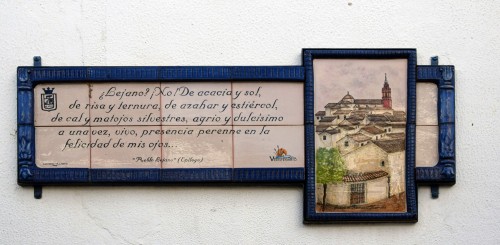 ¿Lejano? ¡No! De acacia y sol,
de risa y ternura, de azahar y estiércol,
de cal y matojos silvestres, agrio y dulcísimo
a una vez, vivo, presencia perenne en la
felicidad de mis ojos...
"Pueblo Lejano" (Epílogo)